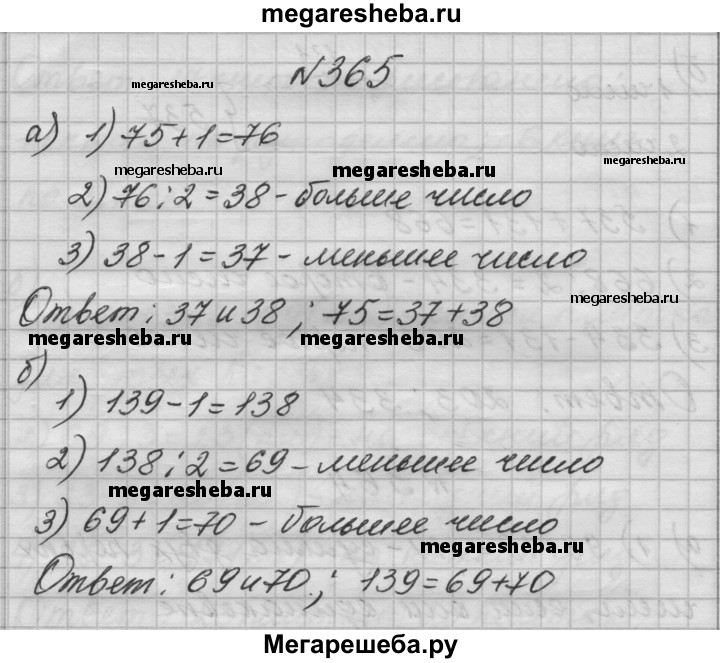 megaresheba.ru
№365
megaresheba.ru
а) 1) 75+1=76
megaresheba.ru
megaresheba.ru
megaresheba.ru
2) 76:2=38 - больше число
3) 38-1=37 - меньшее число
megaresheba.ru
Ответ: 37 и 38; 75=37+38
megaresheba.ru
megaresheba.ru
б)
1) 139-1=138
2) 138:2=69 - меньшее число
megaresheba.ru
3) 69+1=70 - большее число
megaresheba.ru
Ответ: 69 и 70.; 139=69+70
Мегарешеба.ру